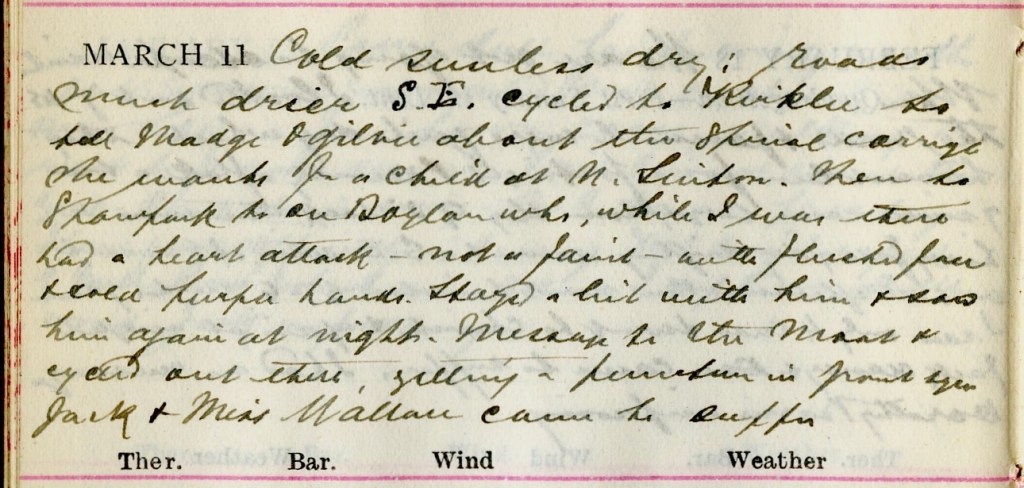 MARCH 11 Cold sunless dry, roads
much drier S.E. cycled to Kirklee to
see Madge Ogilvie about the spinal carriage
she wants for a child at N. Linton. Then to
to see Boylan who, while I was there
had a heart attack - not a faint - with flushed face
& cold purple hands. Stayed a bit with him & saw
him again at night. Message to the Moat &
cycled out there, getting a puncture in front tyre
Jack & Miss Wallace came to supper
Ther. Bar. Wind Weather